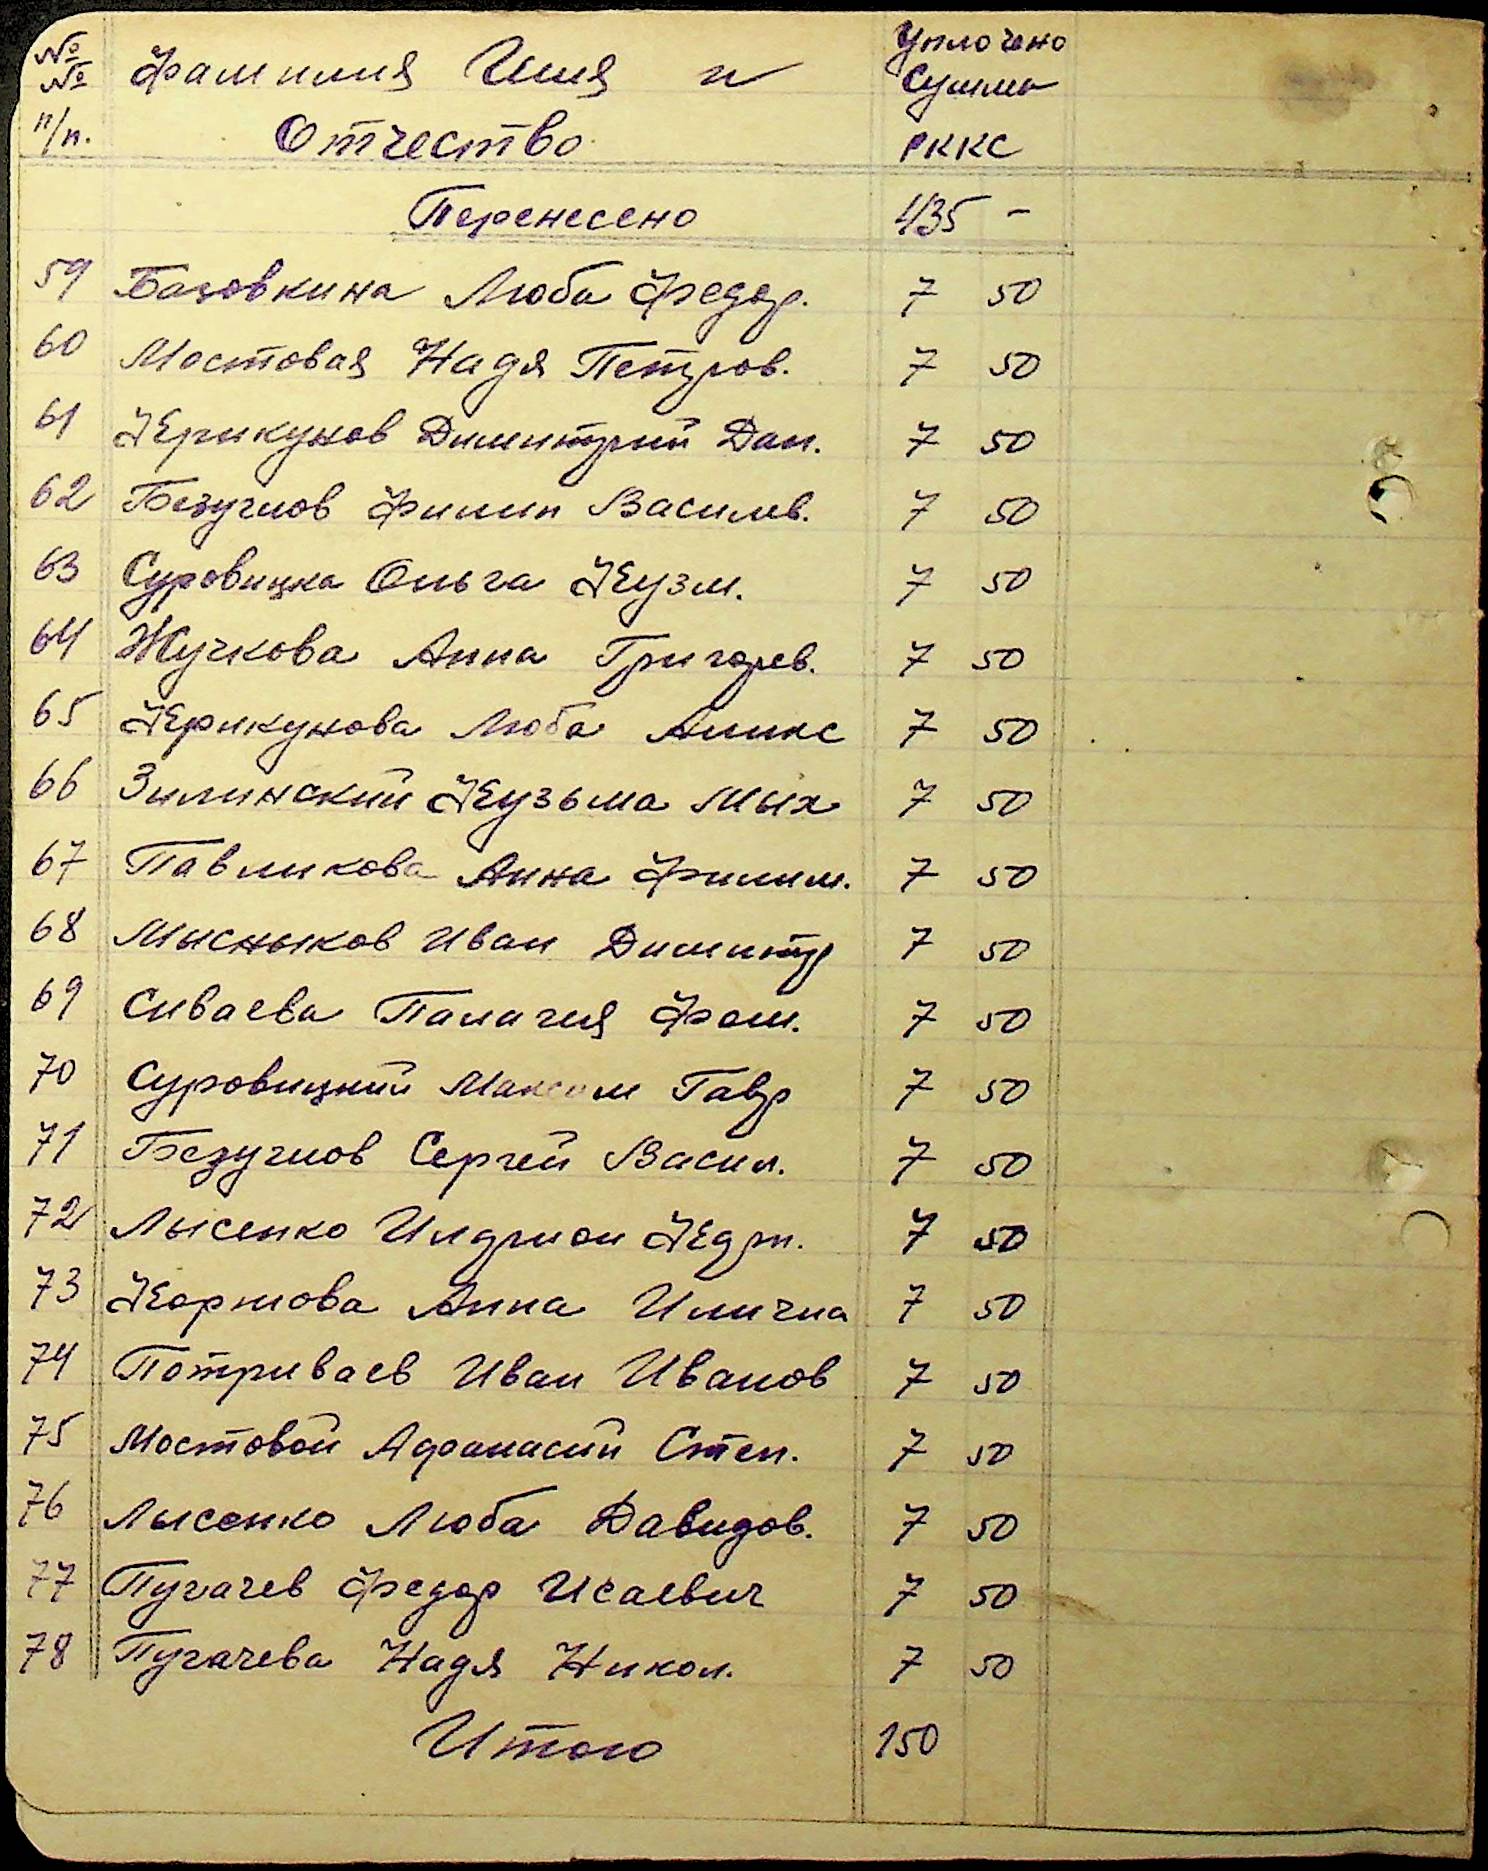 № № п/п. Фамилия Имя и Отчество Уплочено Сумма РККС
Перенесено 435 -
59 Базовкина Люба Федор. 7 50
60 Мостовая Надя Петров. 7 50
61 Керикунов Димитрий Дан. 7 50
62 Безуглов Филип Васильев. 7 50
63 Суровицка Ольга Кузм. 7 50
64 Жучкова Анна Григорев. 7 50
65 Керикунова Люба Аликс 7 50
66 Зилинский Кузьма Мых 7 50
67 Павликова Анна Филим. 7 50
68 Мысныков Иван Димитр 7 50
69 Сиваева Палагия Фом. 7 50
70 Суровицкий Максим Гавр 7 50
71 Безуглов Сергей Васил. 7 50
72 Лысенко Илдрион Кедрн. 7 50
73 Коршова Анна Илична 7 50
74 Потриваев Иван Иванов 7 50
75 Мостовой Афанасий Степ. 7 50
76 Лысенко Люба Давидов. 7 50
77 Пугачев Федор Исаевич 7 50
78 Пугачева Надя Никол. 7 50
Итого 150